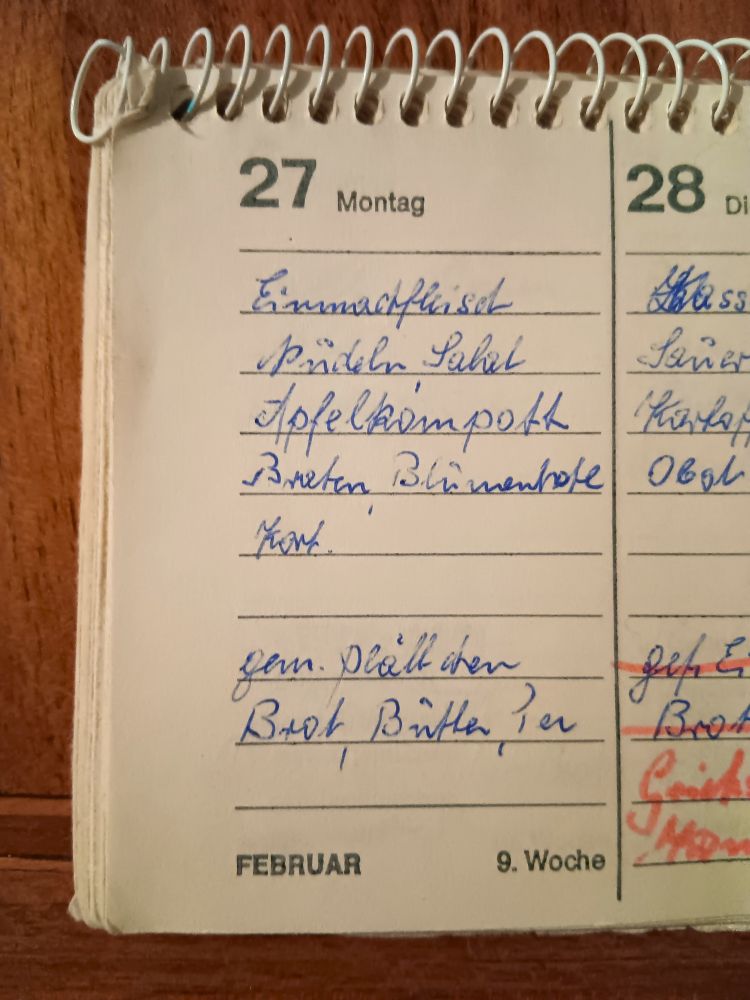 27 Montag
Einmachfleisch
Nudeln, Salat
Apfelkompott
Braten, Blumenkohl
Kart.
gem. Plättchen
Brot, Butter, Tee
FEBRUAR 9. Woche
28 Di
Sauer
Kartof
Obst
gef. Ei
Brot